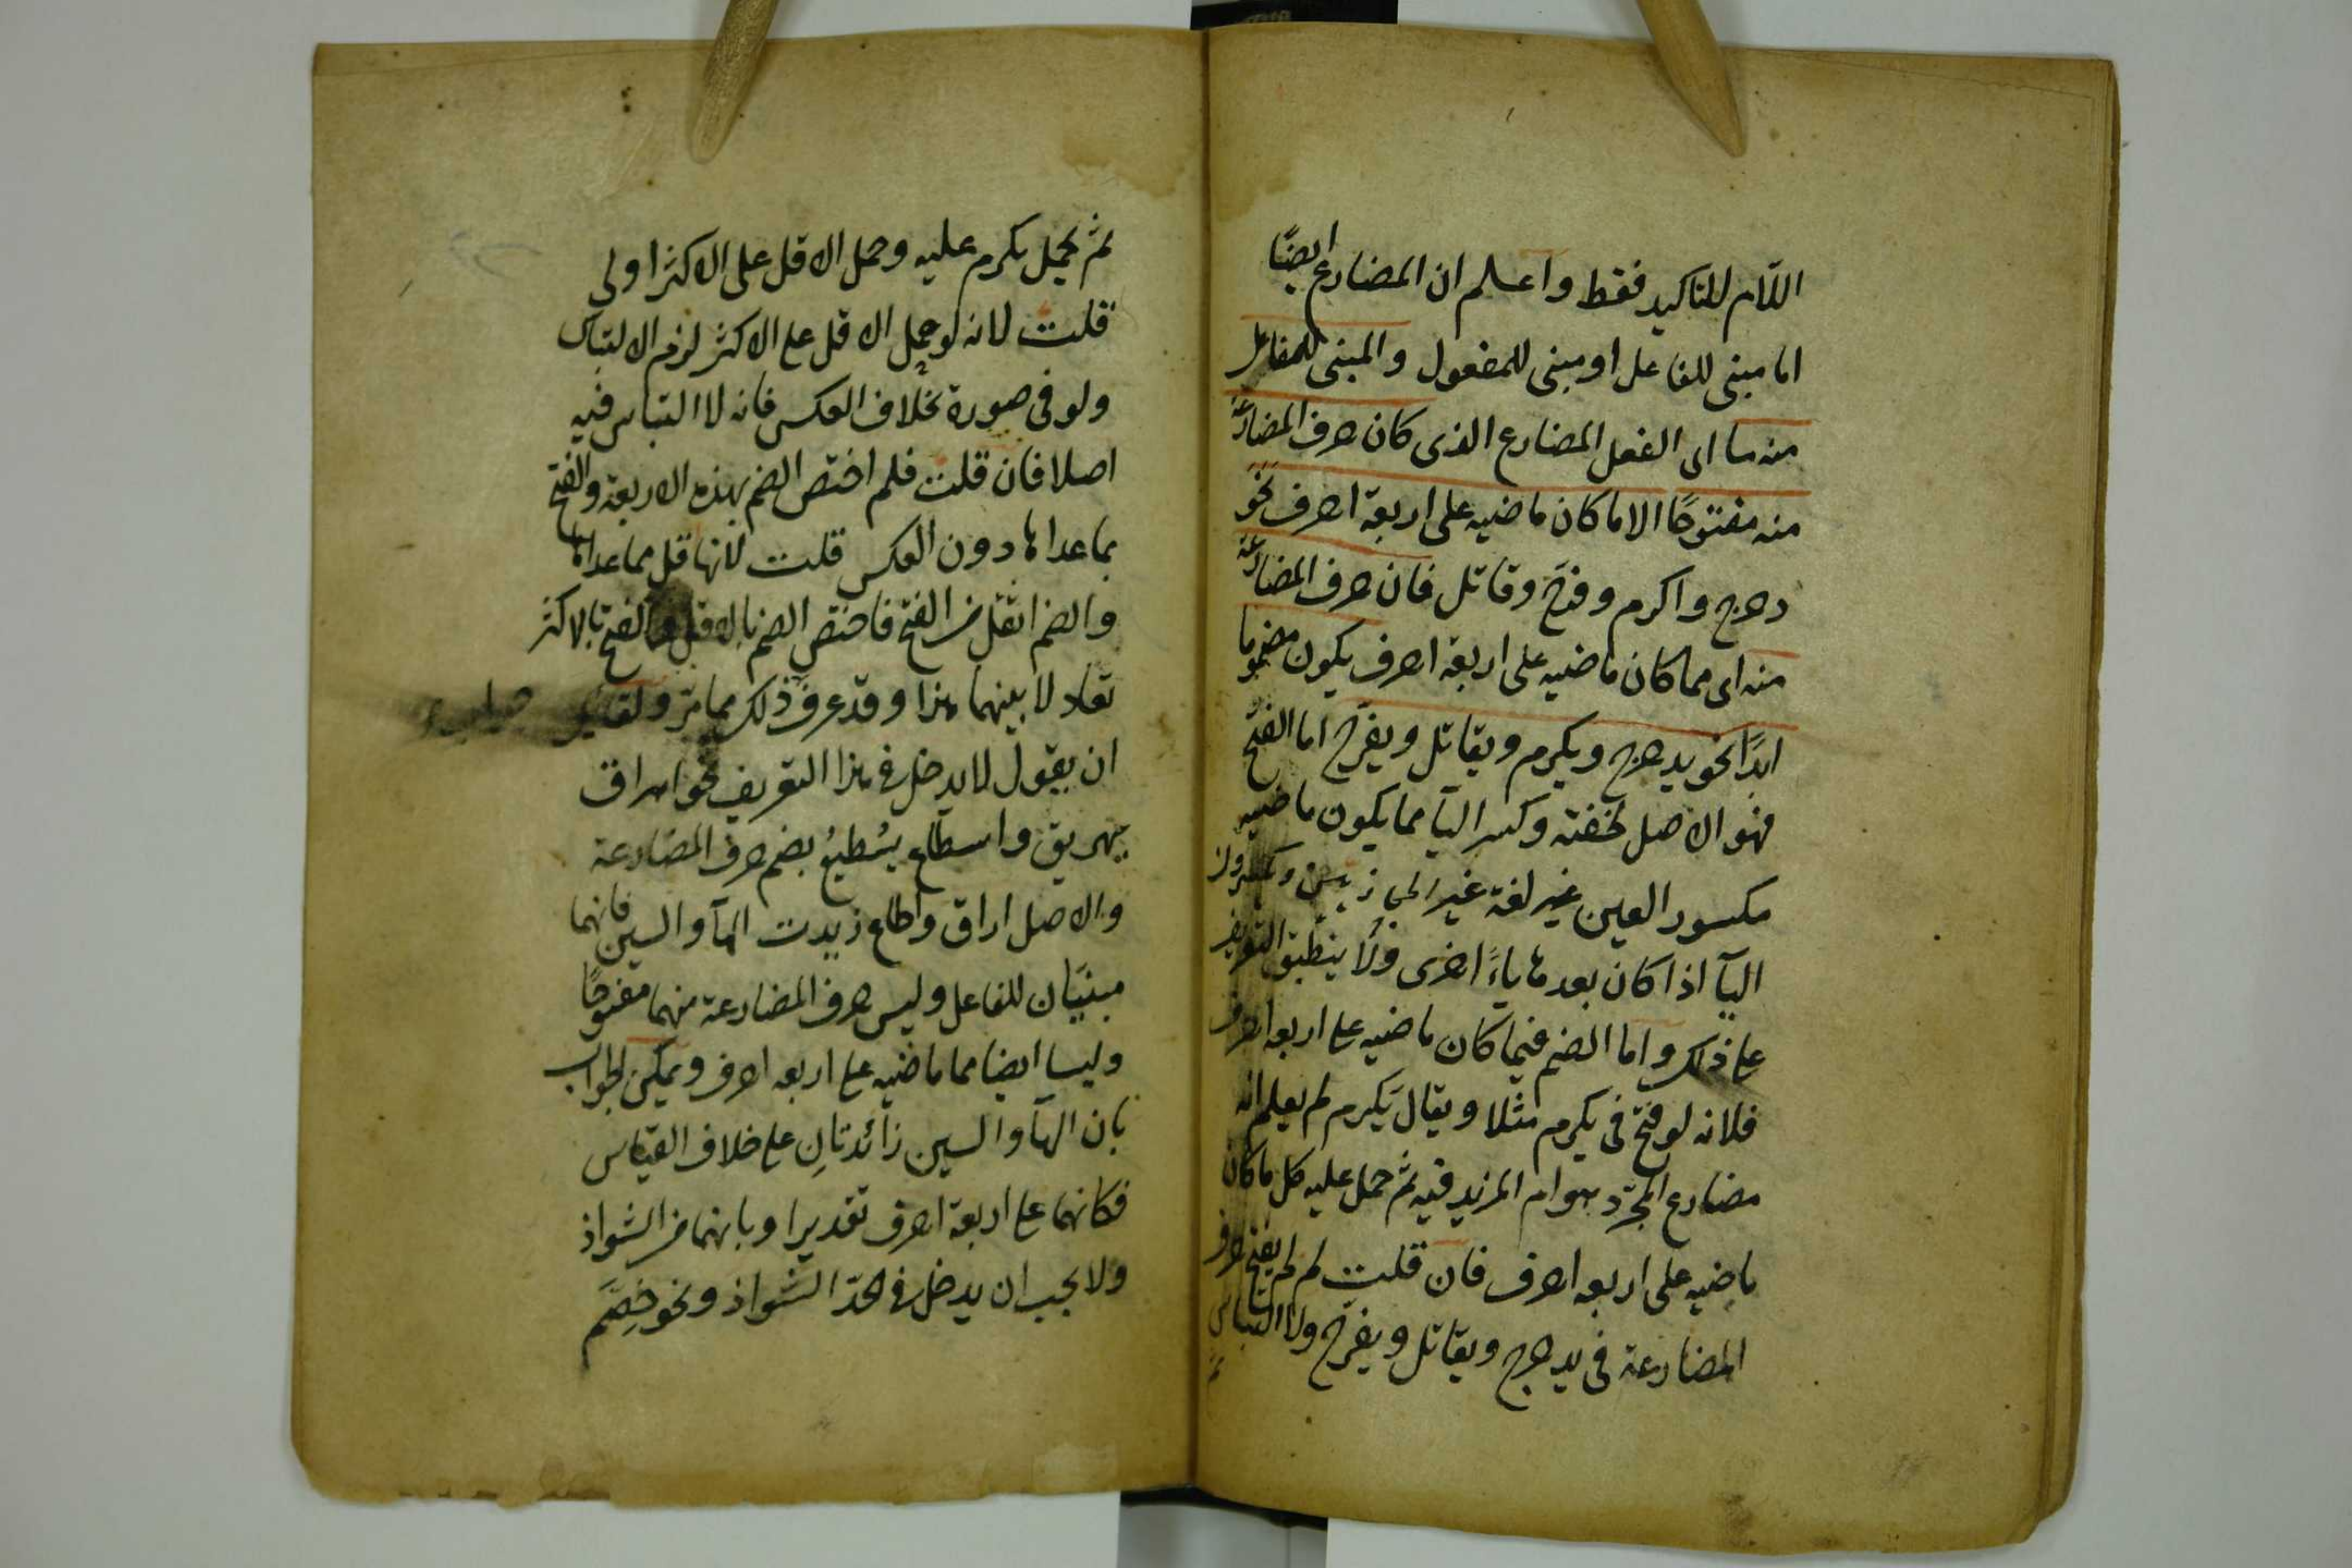 اللّام للتاكيد فقط واعلم ان المضارع ايضًا
اما مبنى للفاعل او مبنى للمفعول والمبنى للفاعل
منهما اى الفعل المضارع الذى كان حرف المضارعة
منه مفتوحًا الا ما كان ماضيه على اربعة احرف نحو
دحرج واكرم وفرّح وقاتل فان حرف المضارعة
منه اى مما كان ماضيه على اربعة احرف يكون مضموما
ابدًا نحو يدحرج ويكرم ويقاتل ويفرّح اما الفتح
فهو الاصل لخفته وكسر اليآ مما يكون ماضيه
مكسور العين غير لغة غير الحجازيين ويكسرون
اليآ اذا كان بعدها ياءً اخرى ولا ينطبق التعريف
على ذلك واما الضم فيما كان ماضيه على اربعه احرف
فلانه لو فتح فى يكرم مثلا ويقال يَكرم لم يعلم انه
مضارع المجرّد هو ام المزيد فيه ثم حمل عليه كل ما كان
ماضيه على اربعه احرف فان قلت لم لم يفتح حرف
المضارعة فى يدحرج ويقاتل ويفرّح ولا التباس
ثم يحمل يكرم عليه وحمل الاقل على الاكثر اولى
قلت لانه لو حمل الاقل على الاكثر لزم الالتباس
ولو فى صورة بخلاف العكس فانه لا التباس فيه
اصلا فان قلت فلم اختص الضم بهذه الاربعة والفتح
بما عداها دون العكس قلت لانها اقل مما عداها
والضم اثقل من الفتح فاختص الضم بالاقل والفتح بالاكثر
تعادلا بينهما هذا وقد عرف ذلك مما مرّ ولقائل
ان يقول لا يدخل فى هذا التعريف نحو اهراق
يهريق واسطاع يُسْطيعُ بضم حرف المضارعة
والاصل اراق واطاع زيدت الهآ والسين فانهما
مبنيَّان للفاعل وليس حرف المضارعة منهما مفتوحًا
وليسا ايضا مما ماضيه على اربعه احرف ويمكن الجواب
بان الهآ والسين زائدتانِ على خلاف القياس
فكانهما على اربعة احرف تقديرا وبانهما من الشواذ
ولا يجب ان يدخل فى الحدّ الشواذ ونحو خِصَّم